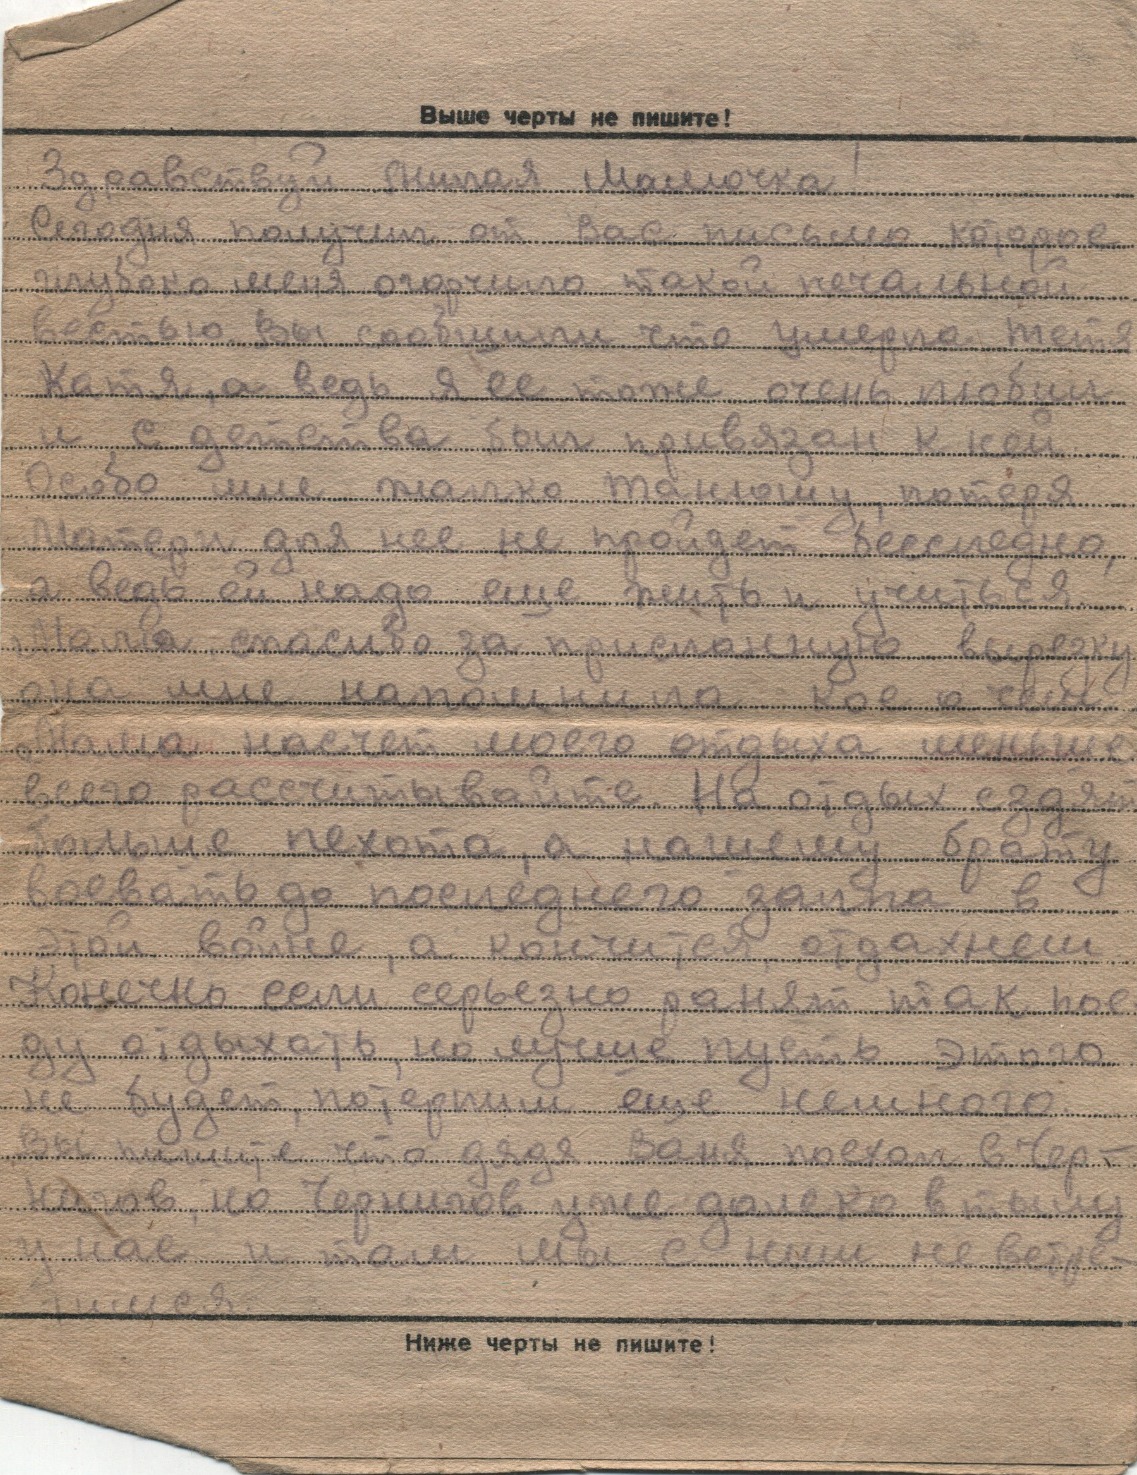 Выше черты не пишите!
Здравствуй Милая Мамочка!
Сегодня получил от Вас письмо которое
глубоко меня огорчило такой печальной
вестью. Вы сообщили что умерла тетя
Катя, а ведь я ее тоже очень любил
и с детства был привязан к ней
Особо мне жалко Танюшу, потеря
Матери для нее не пройдет бесследно,
а ведь ей надо еще жить и учиться.
Мама спасибо за присланную вырезку
она мне напомнила кое о чем
Мама насчет моего отдыха меньше
всего рассчитывайте. На отдых ездят
больше пехота, а нашему брату
воевать до последнего залпа в
этой войне, а кончится, отдахнем
Конечно если серьезно ранят так пое
ду отдыхать, но лучше пусть этого
не будет, потерпим еще немного.
Вы пишите что дядя Ваня поехал в Чер-
нигов, но Чернигов уже далеко в тылу
у нас и там мы с ним не встре-
тимся.
Ниже черты не пишите!